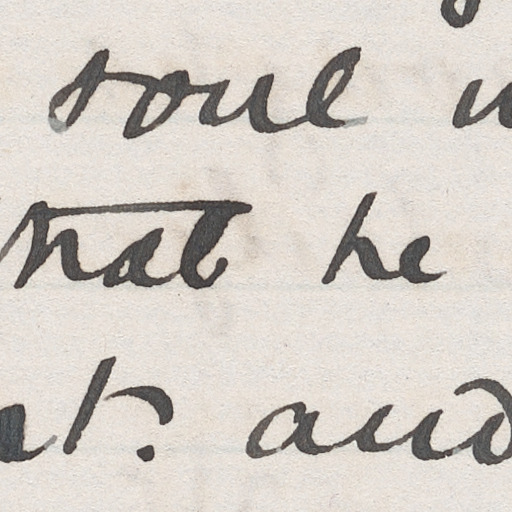 soul
that he
and